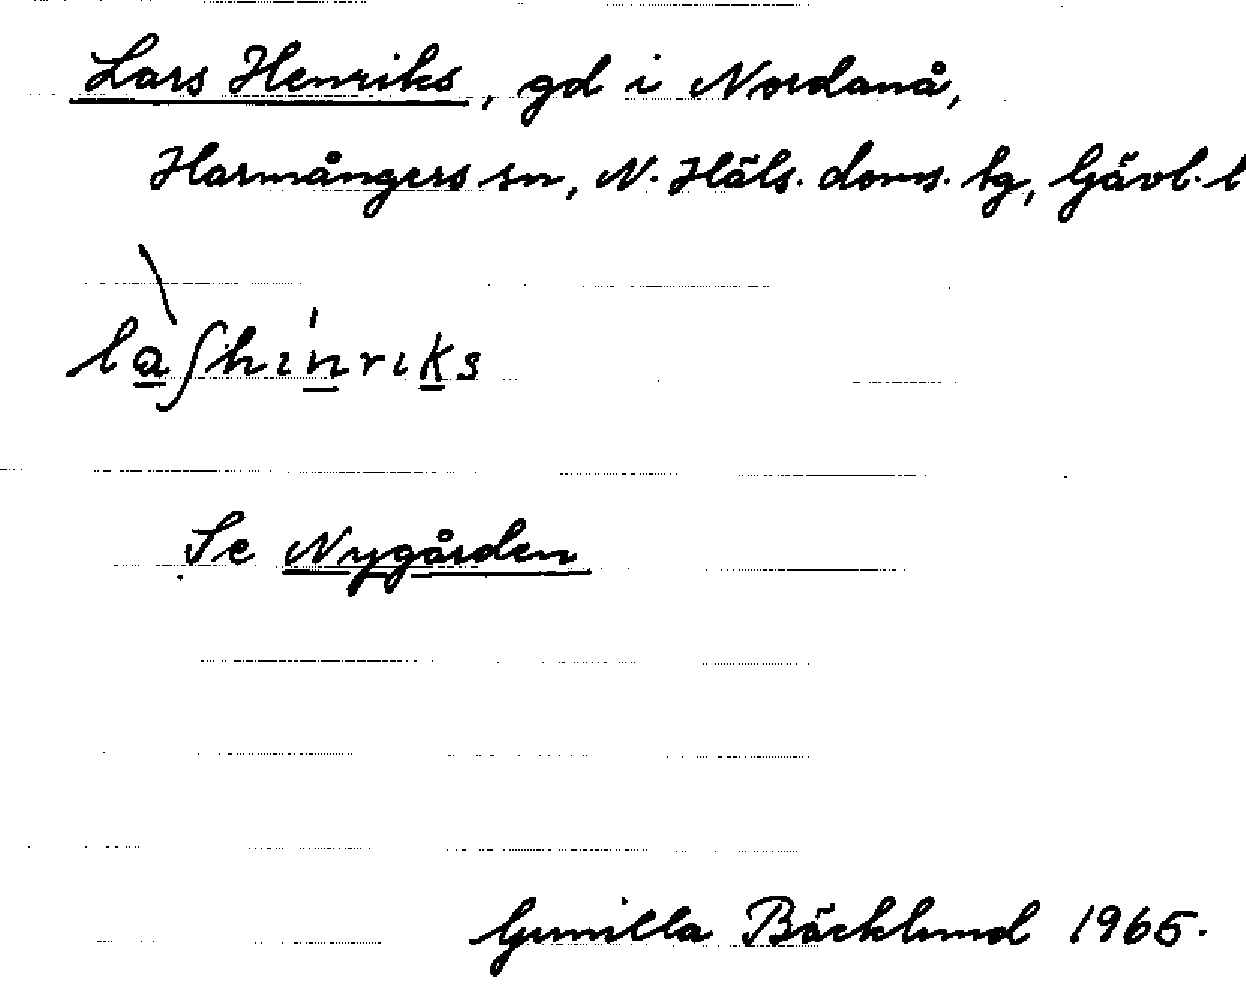 Lars Henriks, gd i Nordanå,
Harmångers sn, N. Häls. doms. tg, Gävl. l
laʃhinrıks
Se Nygården
Gunilla Bäcklund 1965.